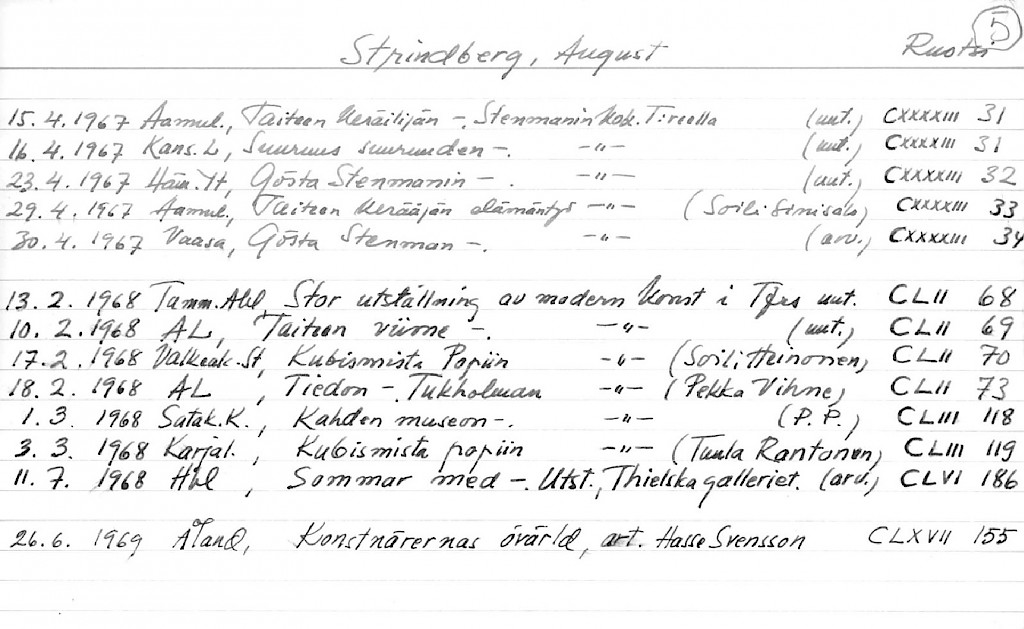 5
Strindberg, August Ruotsi
15.4.1967 Aamul., Taiteen keräilijän -. Stenmanin kok. T:reella (uut.) CXXXXIII 31
16.4.1967 Kans.L, Suuruus suuruuden -. -"- (uut.) CXXXXIII 31
23.4.1967 Häm.Yt, Gösta Stenmanin -. -"- (uut.) CXXXXIII 32
29.4.1967 Aamul., Taiteen kerääjän elämäntyö -"- (Soili Sinisalo) CXXXXIII 33
30.4.1967 Vaasa, Gösta Stenman -. -"- (arv.) CXXXXIII 34
13.2.1968 Tamm.Abl, Stor utställning av modern konst i Tfrs uut. CLII 68
10.2.1968 AL, Taiteen viime -. -"- (uut.) CLII 69
17.2.1968 Valkeak.St, Kubismista Popiin -"- (Soili Heinonen) CLII 70
18.2.1968 AL, Tiedon -. Tukholman -"- (Pekka Vihne) CLII 73
1.3.1968 Satak.K., Kahden museon -. -"- (P.P.) CLIII 118
3.3.1968 Karjal., Kubismista popiin -"- (Tuula Rantonen) CLIII 119
11.7.1968 Hbl, Sommar med -. Utst., Thielska galleriet. (arv.) CLVI 186
26.6.1969 Åland, Konstnärernas övärld, art. Hasse Svensson CLXVII 155